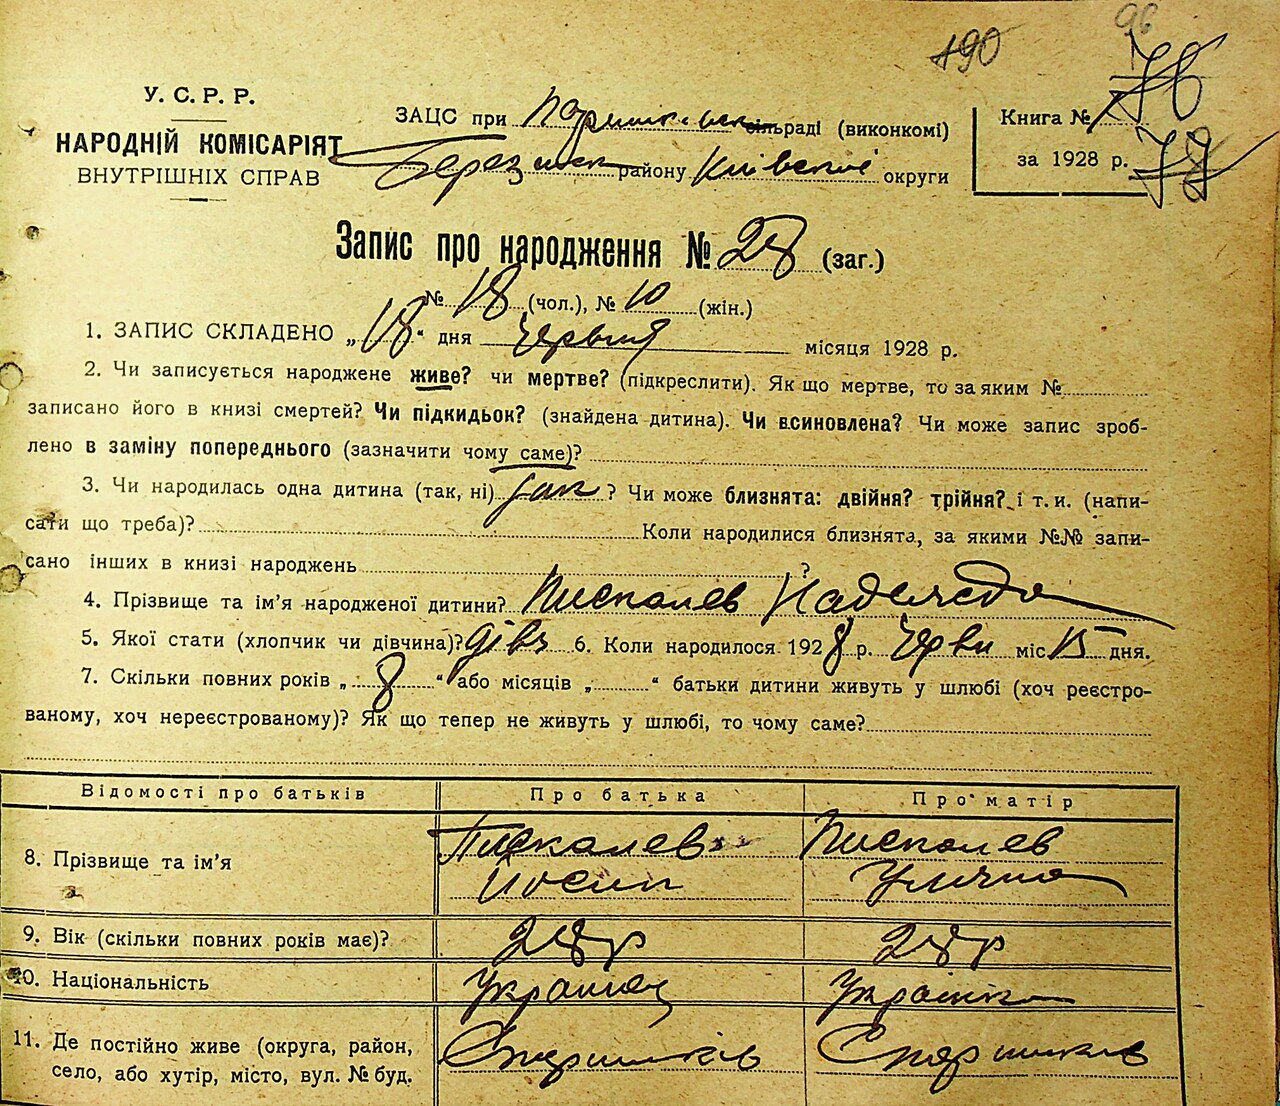 190
96
76
79
У. С. Р. Р.
НАРОДНІЙ КОМІСАРІЯТ
ВНУТРІШНІХ СПРАВ
ЗАЦС при сільраді (виконкомі)
району Київської округи
Книга №
за 1928 р.
Запис про народження № 28 (заг.)
№ 18 (чол.), № 10 (жін.)
1. ЗАПИС СКЛАДЕНО „18“ дня Червня місяця 1928 р.
2. Чи записується народжене живе? чи мертве? (підкреслити). Як що мертве, то за яким №
записано його в книзі смертей? Чи підкидьок? (знайдена дитина). Чи всиновлена? Чи може запис зроб-
лено в заміну попереднього (зазначити чому саме)?
3. Чи народилась одна дитина (так, ні) так? Чи може близнята: двійня? трійня? і т. и. (напи-
сати що треба)? Коли народилися близнята, за якими №№ запи-
сано інших в книзі народжень ?
4. Прізвище та ім’я народженої дитини? Пискалев Надежда
5. Якої стати (хлопчик чи дівчина)? дівч 6. Коли народилося 1928 р. Черви міс 15 дня.
7. Скільки повних років „8“ або місяців „ “ батьки дитини живуть у шлюбі (хоч реєстро-
ваному, хоч нереєстрованому)? Як що тепер не живуть у шлюбі, то чому саме?
Відомості про батьків Про батька Про матір
8. Прізвище та ім’я Пискалев Пискалев
Йосип
9. Вік (скільки повних років має)? 28 р 28 р
10. Національність Українец Українка
11. Де постійно живе (округа, район,
село, або хутір, місто, вул. № буд.